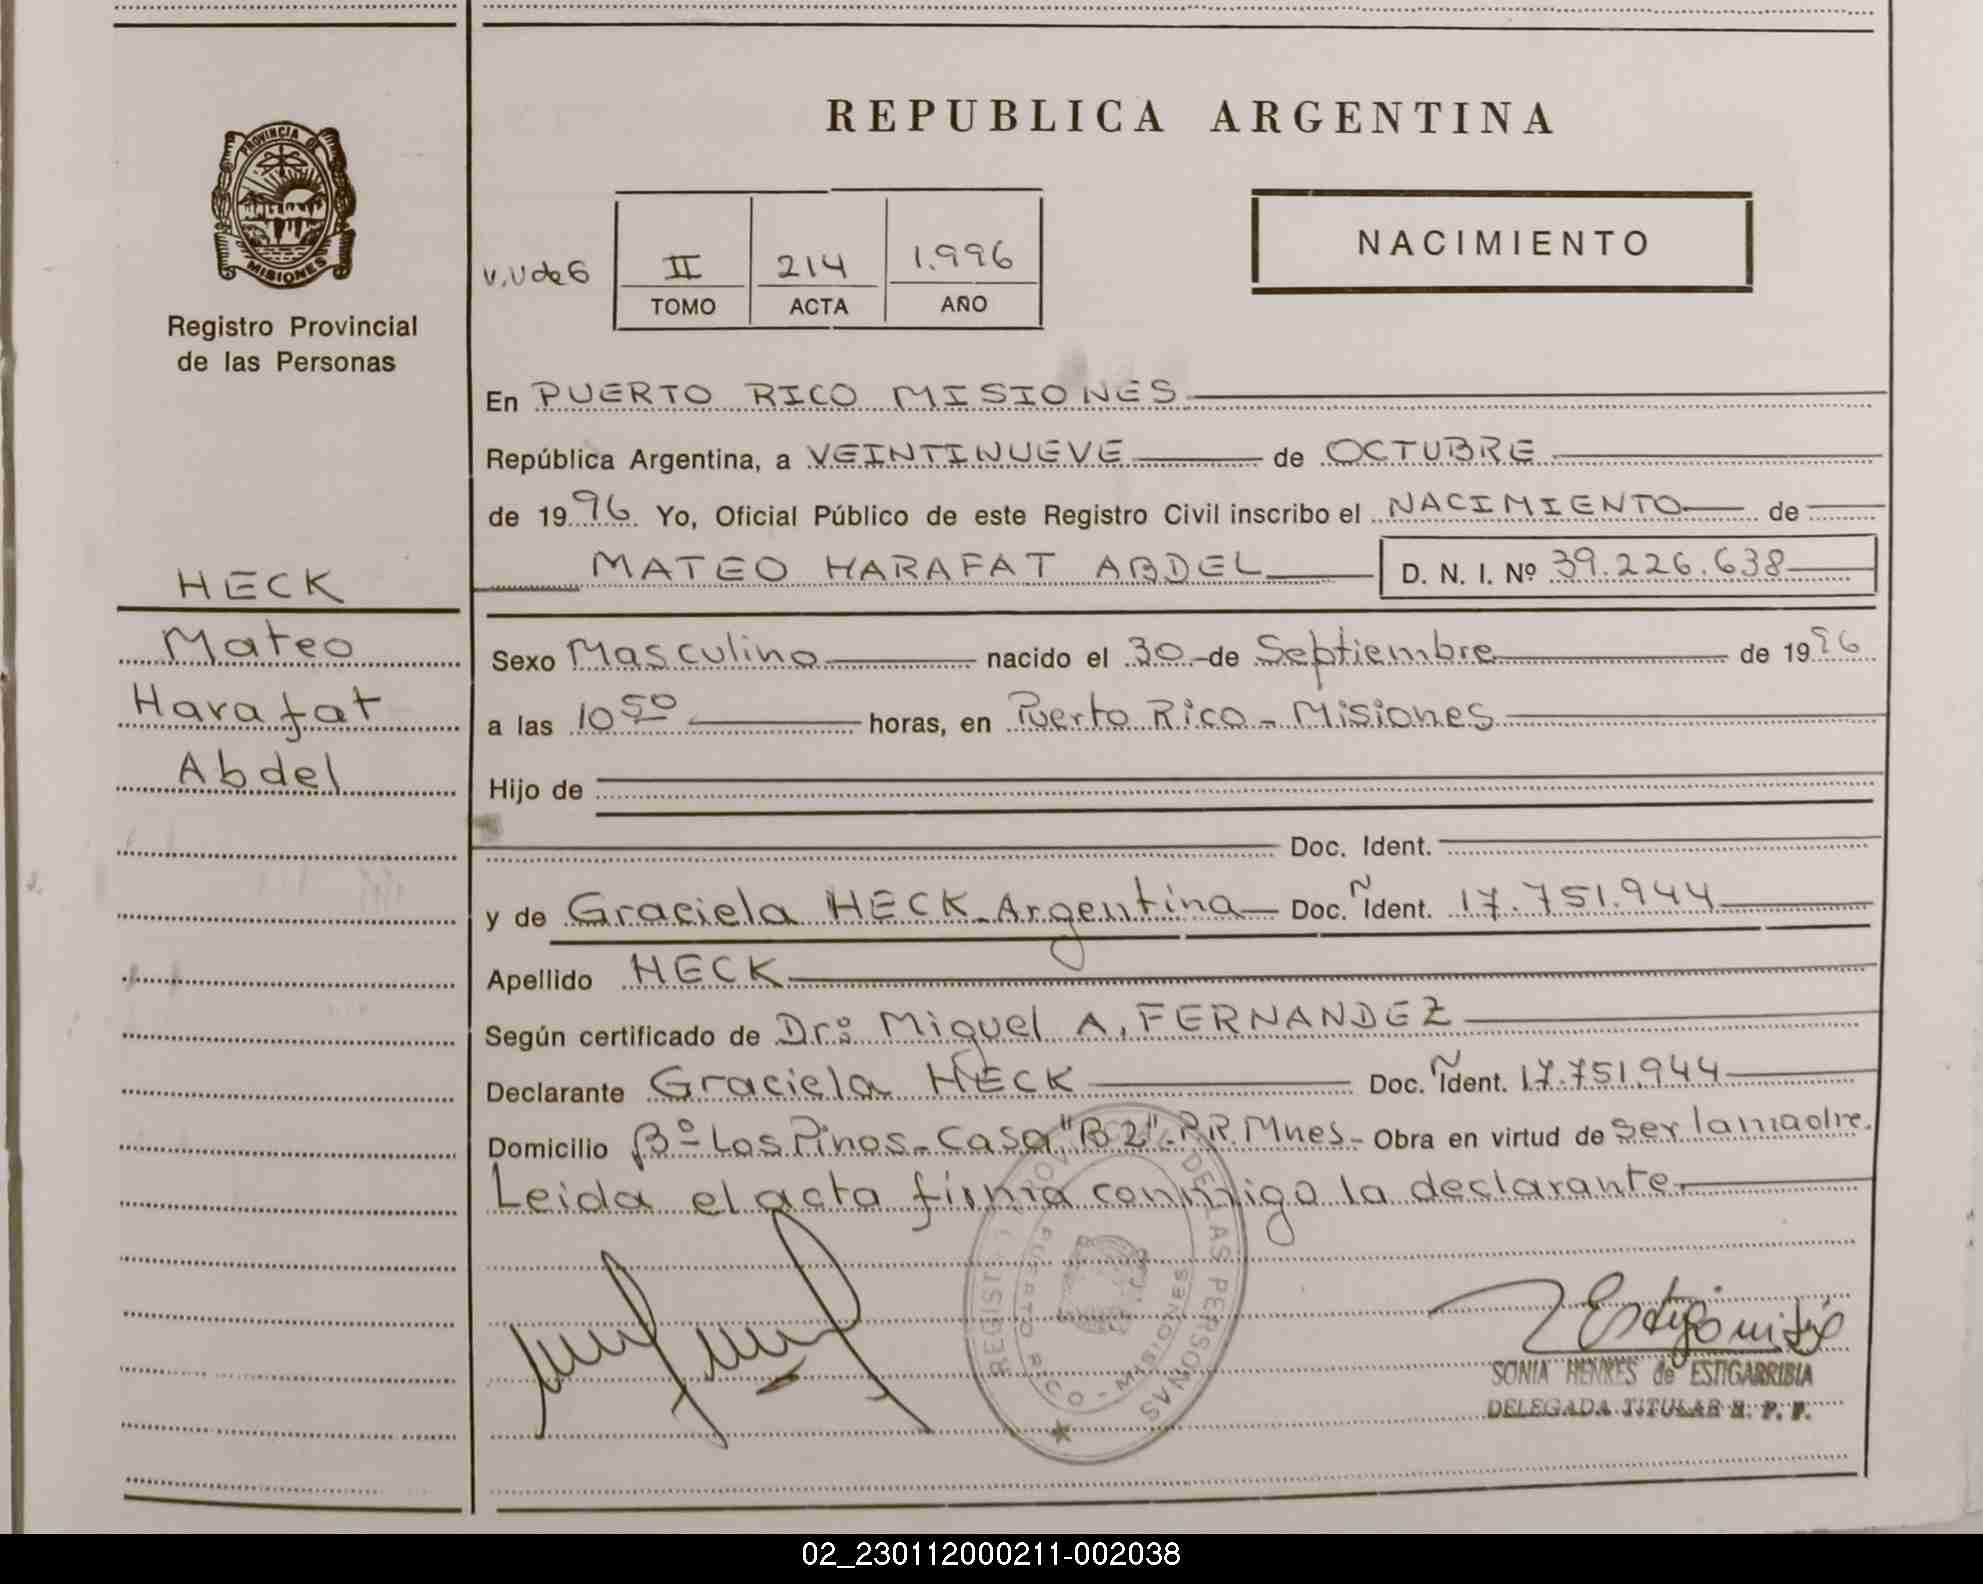 REPUBLICA ARGENTINA
PROVINCIA DE
MISIONES
Registro Provincial
de las Personas
V.Ude6
II 214 1.996
TOMO ACTA AÑO
NACIMIENTO
En PUERTO RICO MISIONES
República Argentina, a VEINTINUEVE de OCTUBRE
de 1996 Yo, Oficial Público de este Registro Civil inscribo el NACIMIENTO de
MATEO HARAFAT ABDEL D. N. I. Nº 39.226.638
HECK
Mateo
Harafat
Abdel
Sexo Masculino nacido el 30 de Septiembre de 1996
a las 10 50 horas, en Puerto Rico - Misiones
Hijo de
Doc. Ident.
y de Graciela HECK - Argentina Doc. Ident. 17.751.944
Apellido HECK
Según certificado de Dr: Miguel A. FERNANDEZ
Declarante Graciela HECK Doc. Ident. 17.751.944
Domicilio Bº Los Pinos - Casa "B2" - P.R. Mnes - Obra en virtud de ser la madre.
Leida el acta firma conmigo la declarante
REGISTRO PROVINCIAL DE LAS PERSONAS
PUERTO RICO - MISIONES
SONIA HENKES de ESTIGARRIBIA
DELEGADA TITULAR R. P. P.
02_230112000211-002038